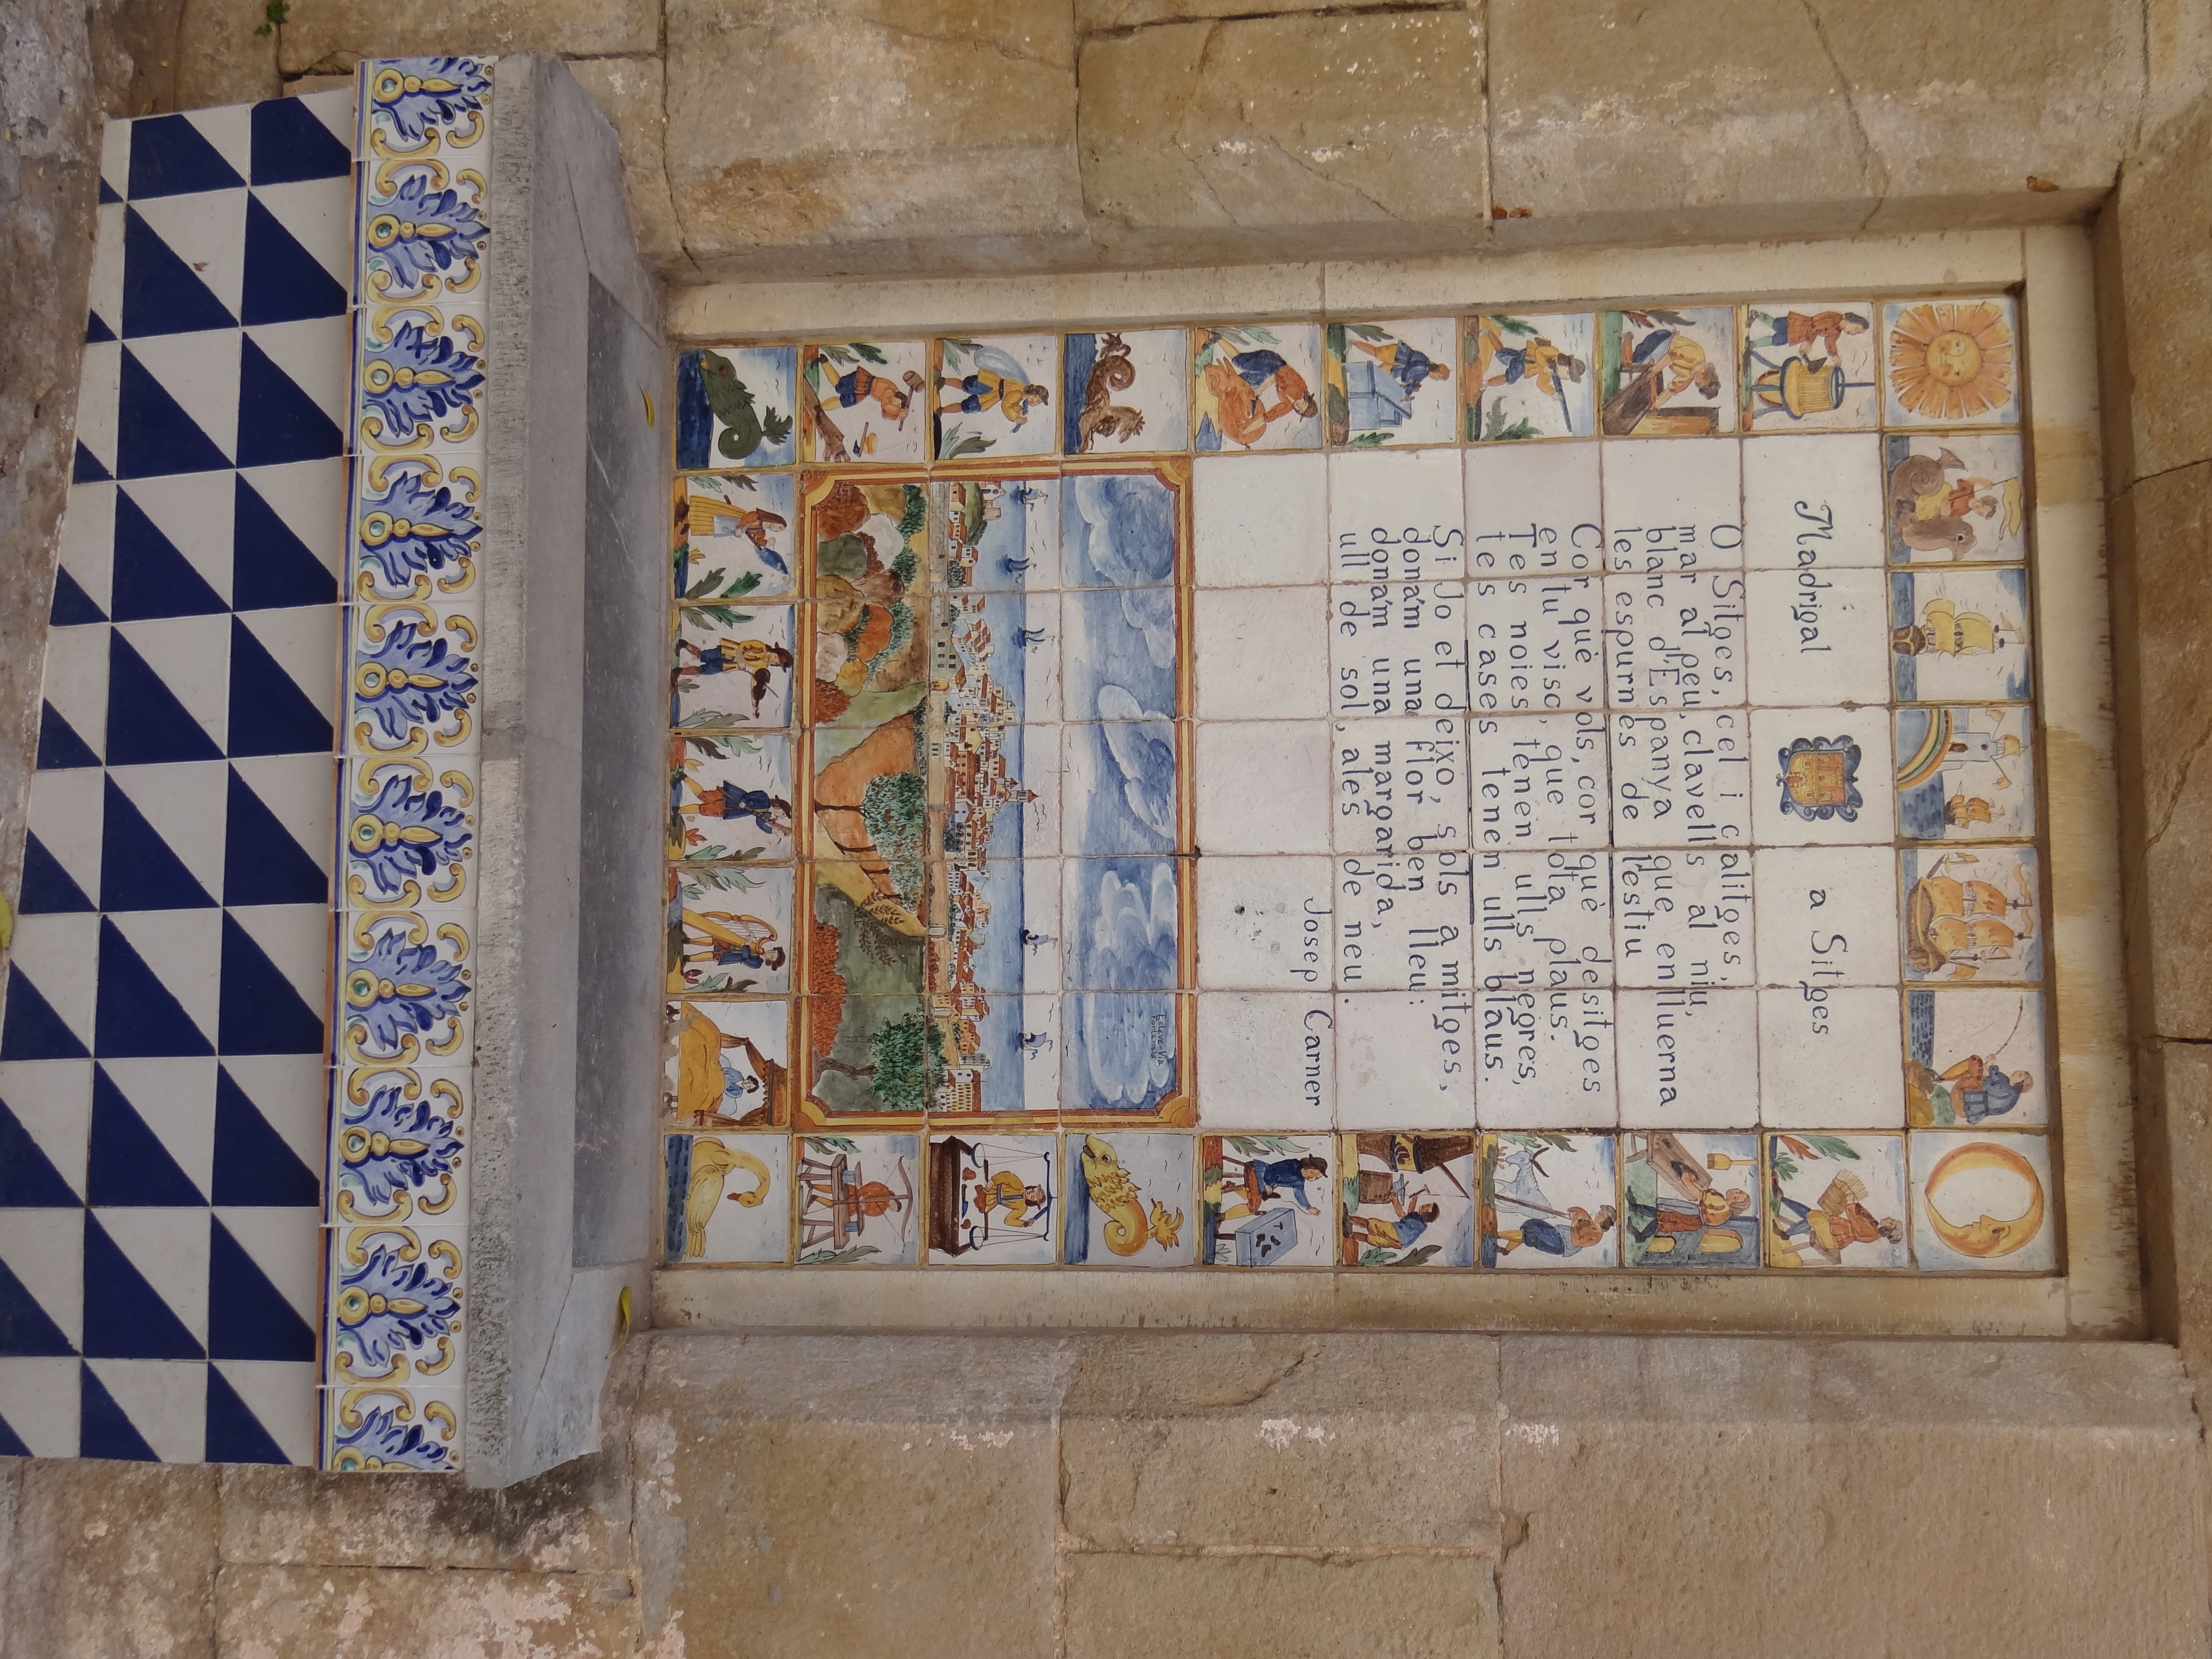 Madrigal a Sitges
O Sitges, cel i calitges,
mar al peu, clavells al niu,
blanc d'Espanya que enlluerna
les espurnes de l'estiu
Cor què vols, cor què desitges
en tu visc, que tota plaus.
Tes noies tenen ulls negres,
tes cases tenen ulls blaus.
Si Jo et deixo, sols a mitges,
dona'm una flor ben lleu:
dona'm una margarida,
ull de sol, ales de neu.
Josep Carner
Esteve-Via